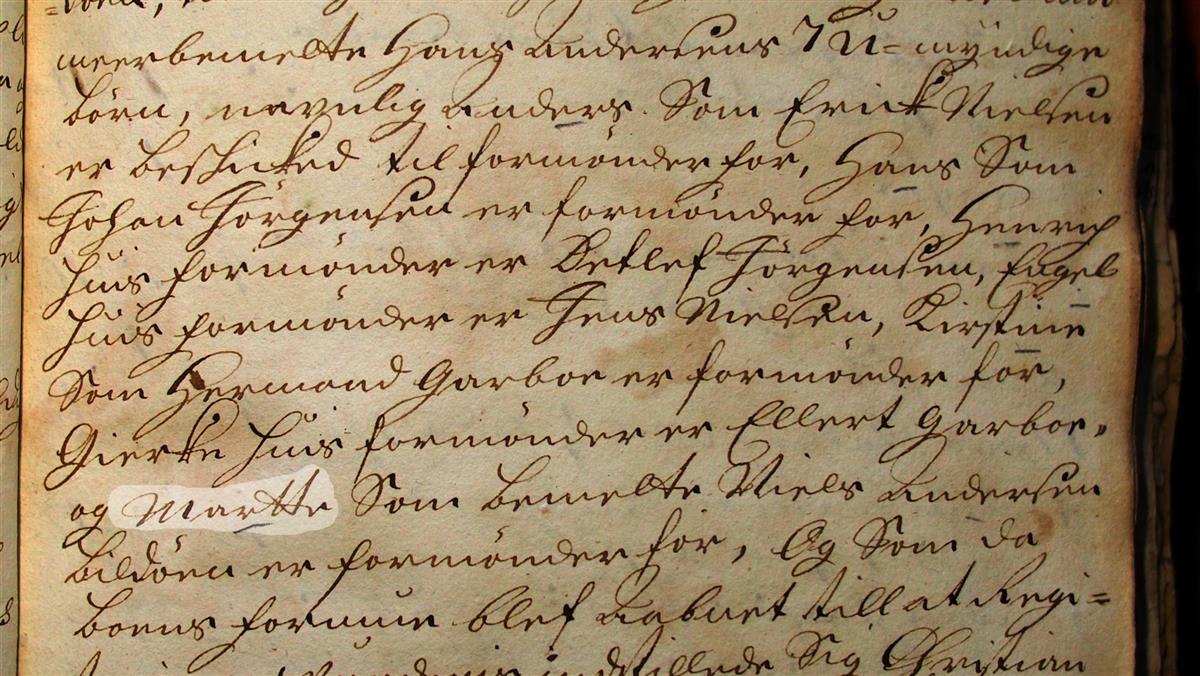 meerbemelte Hans Andersens 7 U=myndige
børn, navnlig Anders. Som Erick Nielsen
er beskicked til formønder for, Hans Som
Johan Jörgensen er formønder for, Henrich
huis formønder er Detlef Jörgensen, Engel
huis formønder er Jens Nielsen, Kirstine
Som Hermand Garboe er formønder for,
Gierke huis formønder er Ellert Garboe,
og Martte Som bemelte Niels Andersen
Bildöen er formønder for, Og Som da
boens formue blef aabnet till at Regi=
indstillede Sig Christian